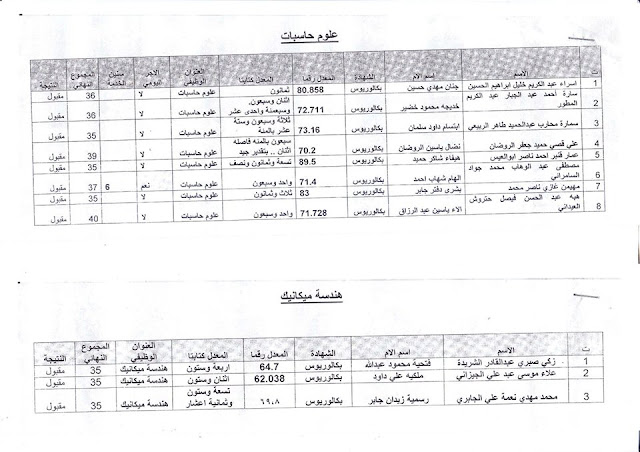 علوم حاسبات
ت الاسم اسم الام الشهادة المعدل رقما المعدل كتابتا العنوان الوظيفي الاجر اليومي سنين الخدمة المجموع النهائي النتيجة
1 اسراء عبد الكريم خليل ابراهيم الحسين جنان مهدي حسين بكالوريوس 80.858 ثمانون علوم حاسبات لا 36 مقبول
2 سارة أحمد عبد الجبار عبد الكريم المظور خديجه محمود خضير بكالوريوس 72.711 اثنان وسبعون. وسبعمئة واحدى عشر علوم حاسبات لا 36 مقبول
3 سمارة محارب عبدالحميد طاهر الربيعي ابتسام داود سلمان بكالوريوس 73.16 ثلاثة وسبعون وستة عشر بالمئة علوم حاسبات لا 35 مقبول
4 علي قصي حميد جعفر الروضان نضال ياسين الروضان بكالوريوس 70.2 سبعون بالمئه فاصله اثنان .. بتقدير جيد علوم حاسبات لا 39 مقبول
5 عمار قنبر احمد ناصر ابوالعيس هيفاء شاكر حميد بكالوريوس 89.5 تسعة وثمانون ونصف علوم حاسبات لا 35 مقبول
6 مصطفى عبد الوهاب محمد جواد السامرائي الهام شهاب احمد بكالوريوس 71.4 واحد وسبعون علوم حاسبات نعم 6 37 مقبول
7 مهيمن غازي ناصر محمد بشرى دفتر جابر بكالوريوس 83 ثلاث وثمانون علوم حاسبات لا 35 مقبول
8 هبه عبد الحسن فيصل حتروش العبداني الاء ياسين عبد الرزاق بكالوريوس 71.728 واحد وسبعون علوم حاسبات لا 40 مقبول
هندسة ميكانيك
ت الاسم اسم الام الشهادة المعدل رقما المعدل كتابتا العنوان الوظيفي المجموع النهائي النتيجة
1 زكي صبري عبدالقادر الشريدة فتحية محمود عبدالله بكالوريوس 64.7 اربعة وستون هندسة ميكانيك 35 مقبول
2 علاء موسى عبد علي الجيزاني ملكيه علي داود بكالوريوس 62.038 اثنان وستون هندسة ميكانيك 35 مقبول
3 محمد مهدي نعمة علي الجابري رسمية زبدان جابر بكالوريوس ٦٩،٨ تسعة وستون وثمانية اعشار هندسة ميكانيك 35 مقبول